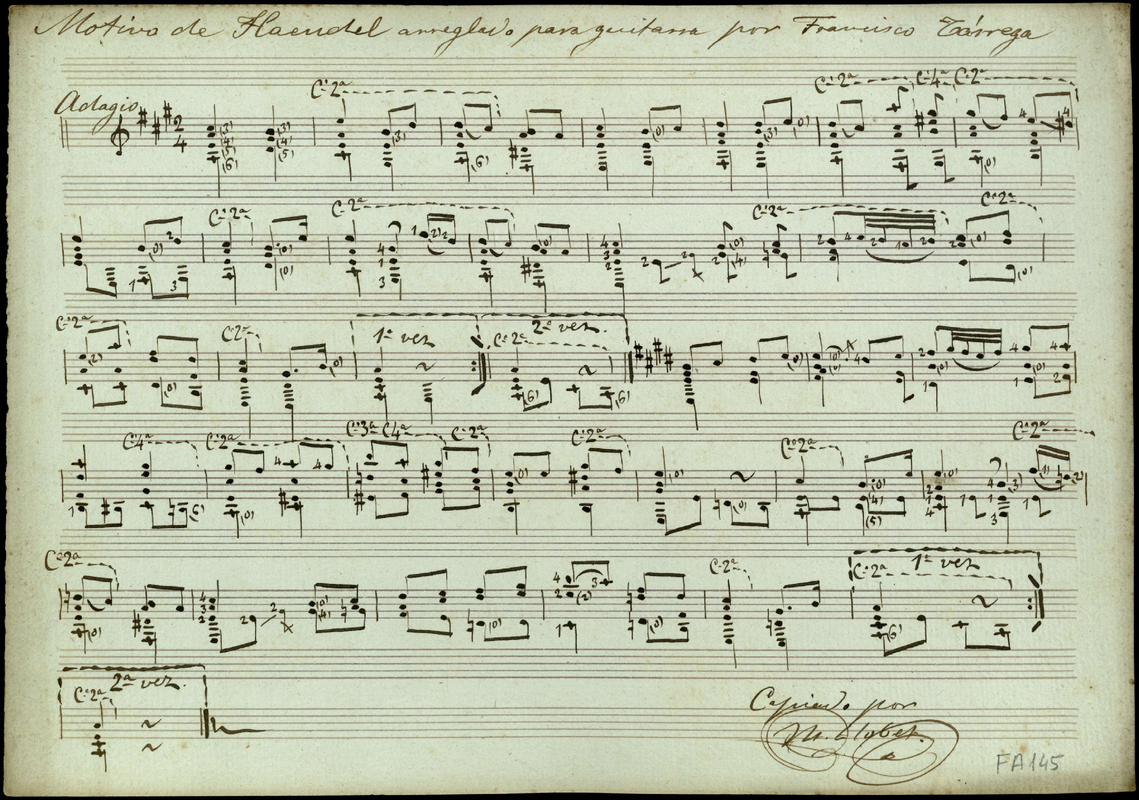 Motivo de Haendel arreglado para guitarra por Francisco Tárrega
Adagio
C. 2ª
C. 2ª C. 4ª C. 2ª
C. 2ª C. 2ª C. 2ª C. 2ª
C. 2ª C. 2ª 1ª vez C. 2ª 2ª vez.
C. 4ª C. 2ª C. 3ª C. 4ª C. 2ª C. 2ª C. 2ª C. 2ª
C. 2ª C. 2ª C. 2ª 1ª vez
C. 2ª 2ª vez.
Copiado por
M. Llobet.
FA145